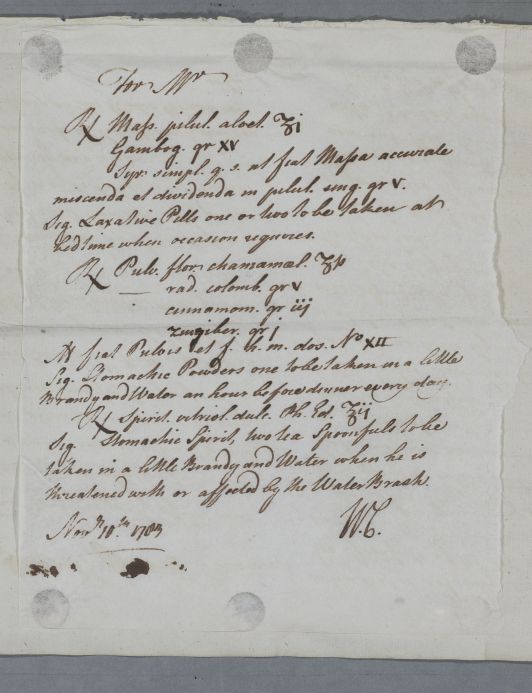 For Mr
℞ Mass. pilul. aloet. ʒj
Gambog. gr XV
Syr. simpl. q. s. ut fiat Massa accurate
miscenda et dividenda in pilul. sing. gr v.
Sig. Laxative Pills one or two to be taken at
bedtime when occasion requires.
℞ Pulv. flor. chamæmel. ʒß
rad. colomb. gr v
cinnamom. gr iij
zingiber. gr j
M fiat Pulvis et f. h. m. dos. No XII
Sig. Stomachic Powders one to be taken in a little
Brandy and Water an hour before dinner every day.
℞ Spirit. vitriol. dulc. Ph. Ed. ʒij
Sig. Stomachic Spirit, two tea Spoonfuls to be
taken in a little Brandy and Water when he is
threatened with or affected by the Water Brash.
Novr. 10th 1783
W.C.